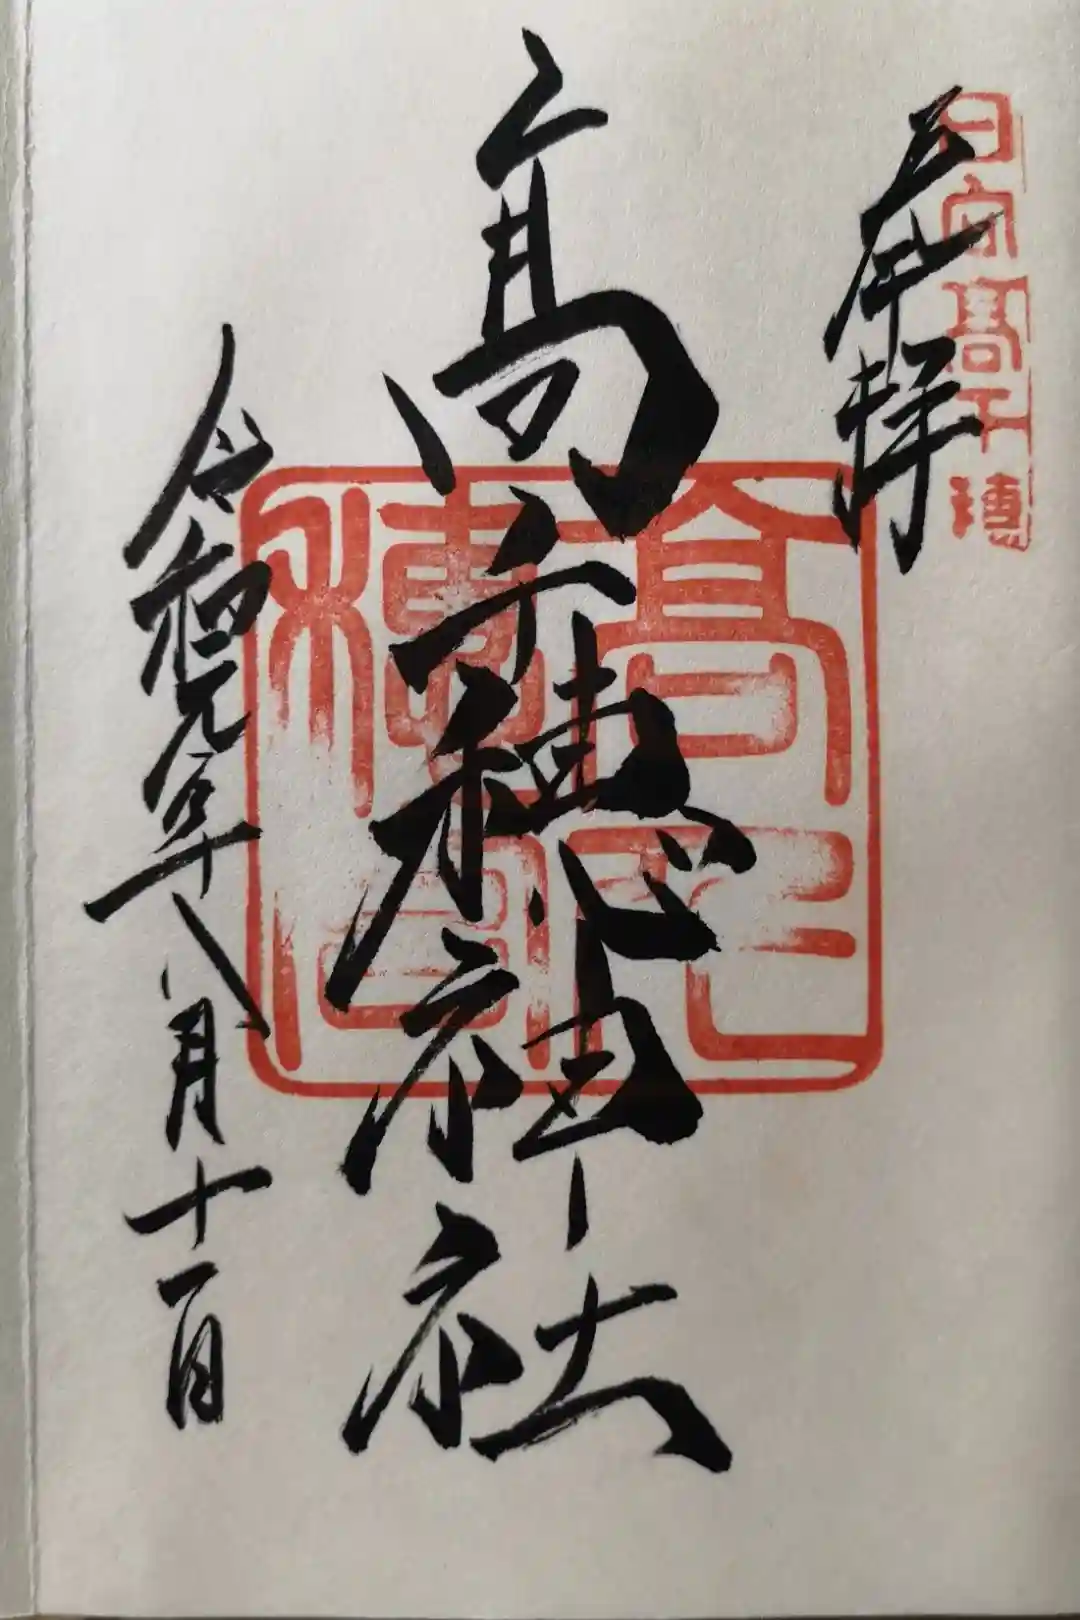 日向高千穂
奉拝
高千穂神社
令和元年八月十一日